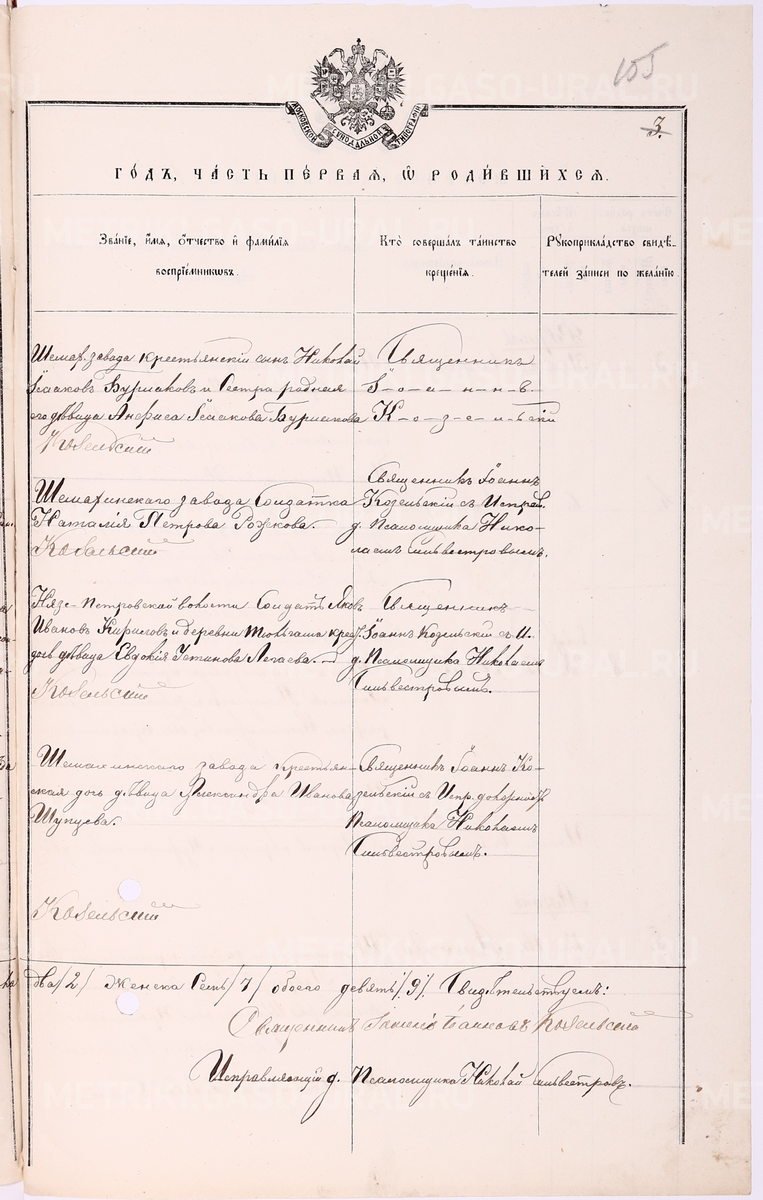 155
3.
МОСКОВСКОЙ СѴНОДАЛЬНОЙ ТИПОГРАФІИ
ГО́ДЪ, ЧА́СТЬ ПЕ́РВАЯ, Ѿ РОДИ́ВШИХСЯ.
Зва́нїе, и҆́мя, ѻ҆́тчество и҆ фами́лїя
воспрїе́мникѡвъ.
Кто̀ соверша́лъ та́инство
креще́нїя.
Рꙋкоприкла́дство свидѣ́-
телей за́писи по жела́нїю.
Шемах. завода крестьянскій сынъ Николай
Исааковъ Бурмаковъ и Сестра родная
его дѣвица Анфиса Исаакова Бурмакова
Козельскій
Священникъ
І-о-а-н-н-ъ
К-о-з-е-л-ь-скій
Шемахинскаго завода Солдатка
Наталія Петрова Рожкова.
Козельскій
Священникъ Іоаннъ
Козельскій съ Исправ.
д. Псаломщика Нико-
лаемъ Сильвестровымъ.
Нязе-Петровской волости Солдатъ Яковъ
Ивановъ Кириловъ и деревни крест.
дочь дѣвица Евдокія Устинова
Козельскій
Священникъ
Іоаннъ Козельскій съ И.
д. Псаломщика Николаемъ
Сильвестровымъ.
Шемахинскаго завода Крестьян-
ская дочь дѣвица Александра Иванова
Шупцева.
Козельскій
Священникъ Іоаннъ Ко-
зельскій съ Испр. должность
Псаломщика Николаемъ
Сильвестровымъ.
два /2/ Женска Семь /7/ обоего девять /9/. Свидѣтельствуемъ:
Священникъ Іоанновъ Козельскій
Исправляющій д. Псаломщика Николай Сильвестровъ.
METRIKI.GASO-URAL.RU